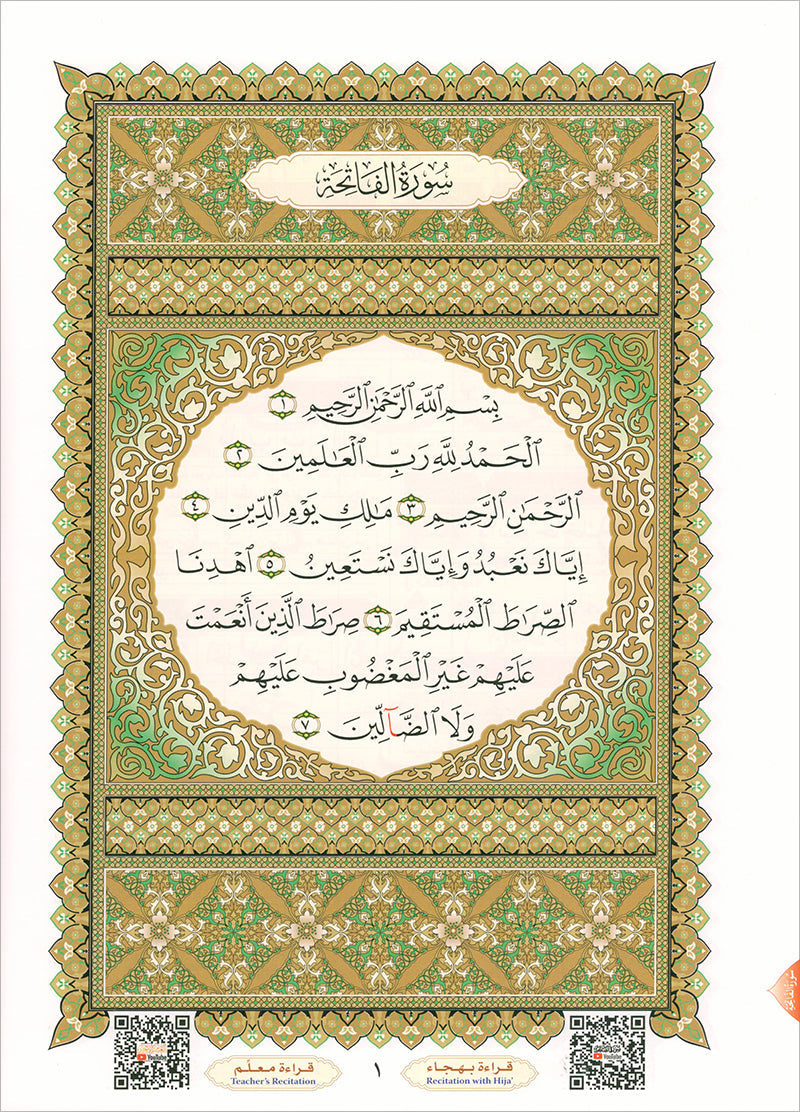 سُورَةُ الفَاتِحَةِ
بِسْمِ ٱللَّهِ ٱلرَّحْمَٰنِ ٱلرَّحِيمِ ١
ٱلْحَمْدُ لِلَّهِ رَبِّ ٱلْعَٰلَمِينَ ٢
ٱلرَّحْمَٰنِ ٱلرَّحِيمِ ٣ مَٰلِكِ يَوْمِ ٱلدِّينِ ٤
إِيَّاكَ نَعْبُدُ وَإِيَّاكَ نَسْتَعِينُ ٥ ٱهْدِنَا
ٱلصِّرَٰطَ ٱلْمُسْتَقِيمَ ٦ صِرَٰطَ ٱلَّذِينَ أَنْعَمْتَ
عَلَيْهِمْ غَيْرِ ٱلْمَغْضُوبِ عَلَيْهِمْ
وَلَا ٱلضَّآلِّينَ ٧
سُورَةُ الفَاتِحَةِ
YouTube
قراءة معلّم
Teacher's Recitation
١
قراءة بهجاء
Recitation with Hija'
YouTube